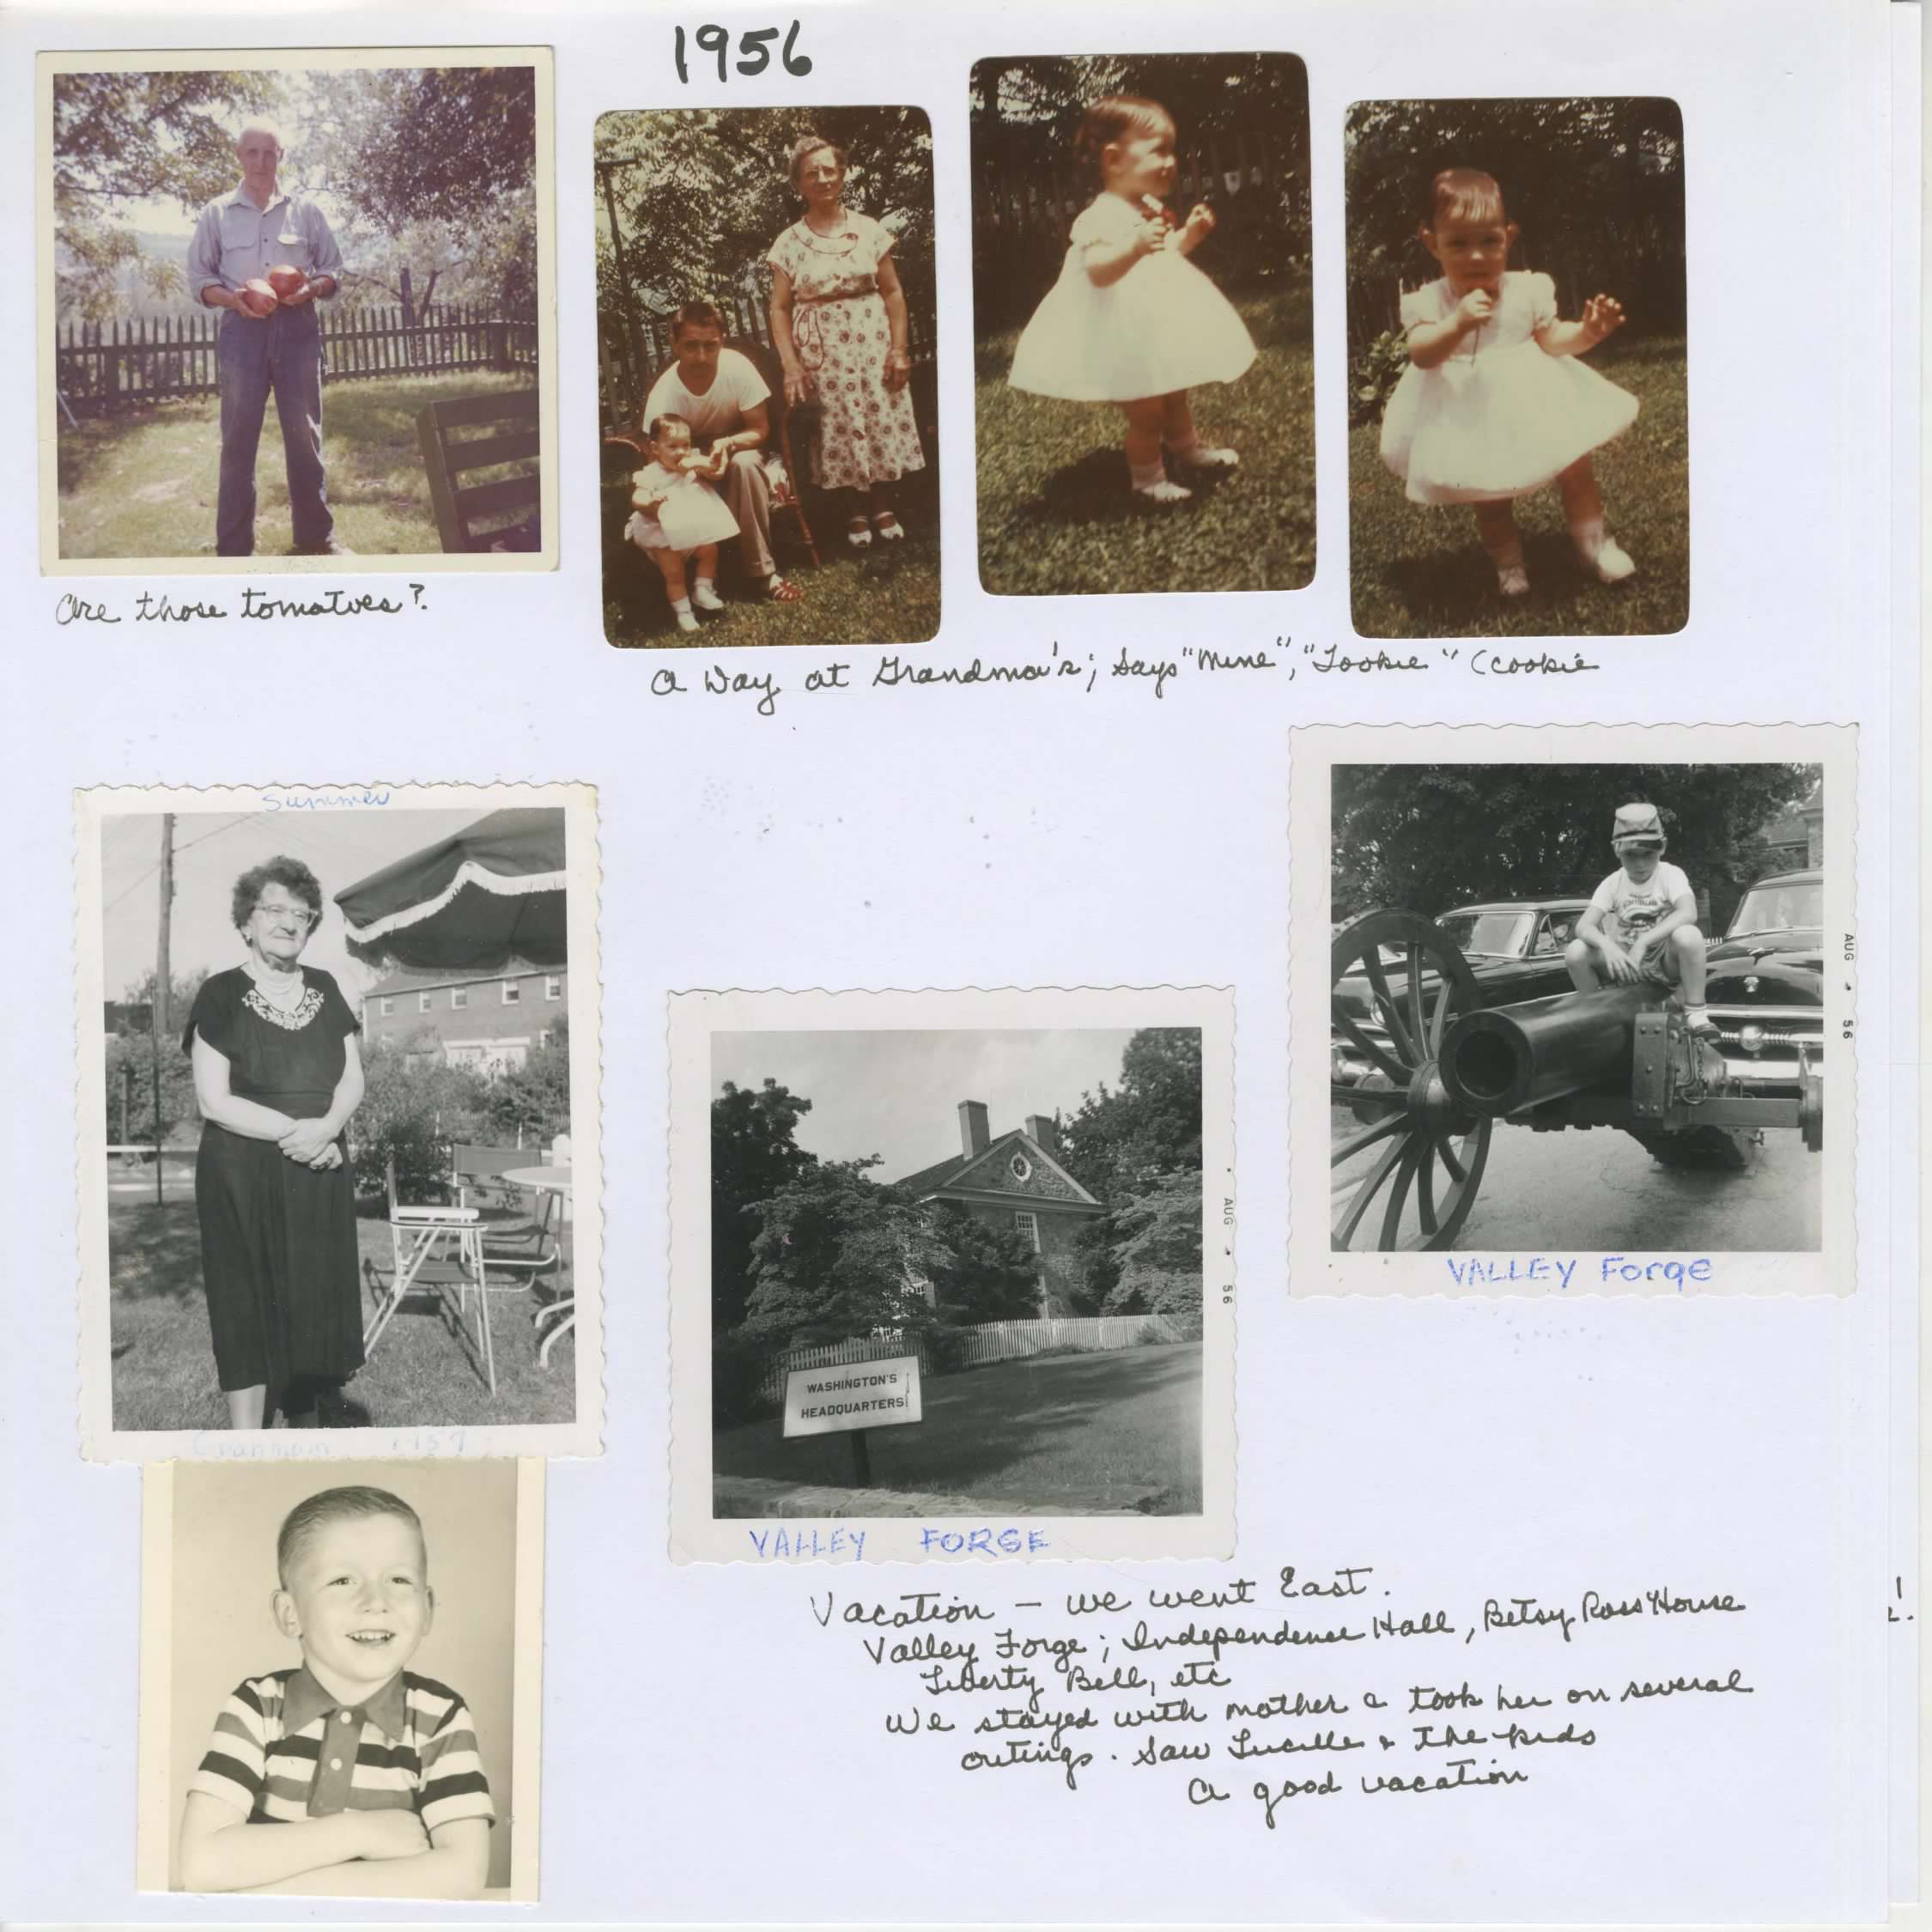 1956
are those tomatoes?
A Day at Grandma's; says "Mine", "Tookie" (cookie
Summer
1957
WASHINGTON'S
HEADQUARTERS
AUG 56
VALLEY FORGE
AUG 56
VALLEY Forge
Vacation - we went East.
Valley Forge; Independence Hall, Betsy Ross House
Liberty Bell, etc
We stayed with mother & took her on several
outings. Saw Lucille & the kids
A good vacation